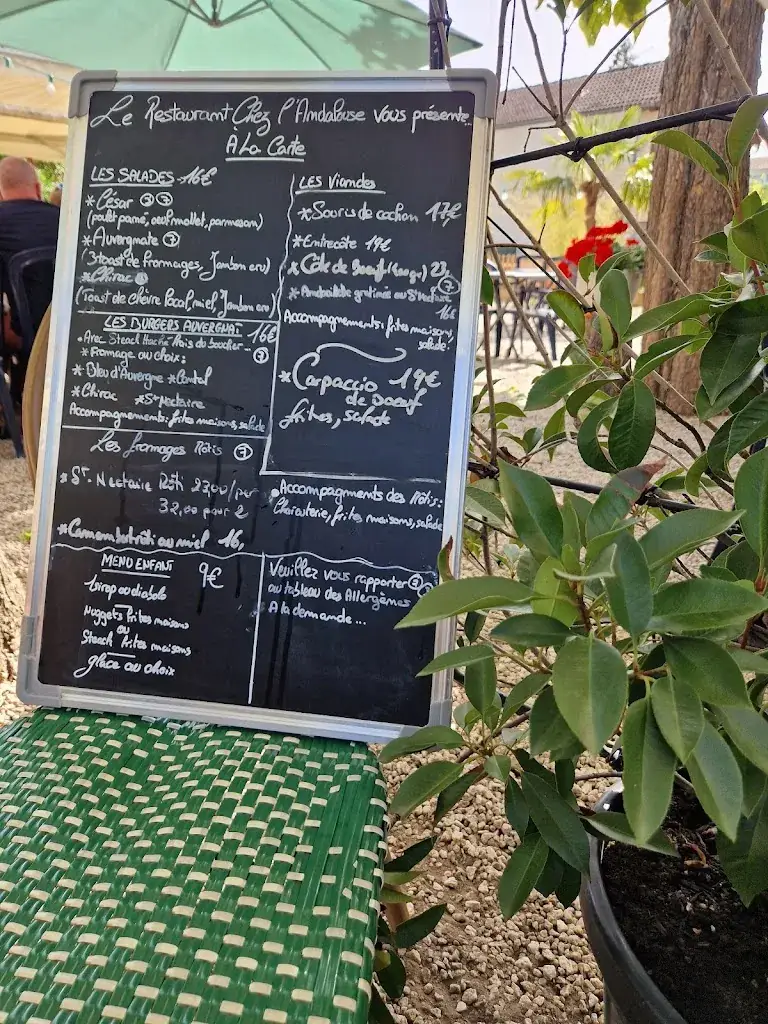 Le Restaurant Chez l'Andalouse vous présente...
À La Carte
LES SALADES 16€
*César
(poulet pané, oeuf mollet, parmesan)
*Auvergnate 7
(3 toast de fromages, Jambon cru)
*Chirac
(Toast de chèvre local, miel, Jambon cru)
LES BURGERS AUVERGNAT 16€
Avec Steack Haché frais du boucher... 7
*fromage au choix:
*Bleu d'Auvergne *Cantal
*Chirac *St Nectaire
Accompagnements: frites maisons, salade
Les fromages Rôtis 7
*St. Nectaire Rôti 23,00/per
32,00 pour 2
*Camembert rôti au miel 16,
MENU ENFANT 9€
Sirop ou diabolo
Nuggets frites maisons
ou
Steack frites maisons
glace au choix
LES Viandes
*Souris de cochon 17€
*Entrecôte 19€
*Côte de Boeuf 23
*gratinée au St Nectaire 7
16€
Accompagnements: frites maisons,
salade.
*Carpaccio 19€
de boeuf
frites, salade
Accompagnements des Rôtis:
Charcuterie, frites maisons, salade
Veuillez vous rapporter 7
au tableau des Allergènes
A la demande...